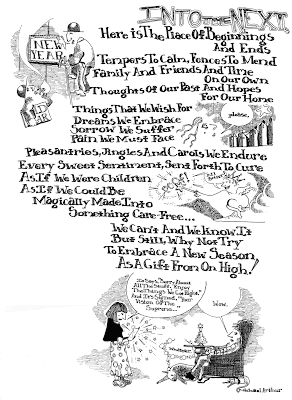 INTO THE NEXT,
Here is The Place Of Beginnings
And Ends
Tempers To Calm, Fences To Mend
Family And Friends And Time
On Our Own
Thoughts Of Our Past And Hopes
For Our Home
NEW
YEAR
Things That We Wish For
Dreams We Embrace
Sorrow We Suffer
Pain We Must Face
please,
Pleasantries, Jingles And Carols We Endure
Every Sweet Sentiment, Sent Forth To Cure
As If We Were Children
As If We Could Be
Magically Made Into
Something Care-Free...
We Can't And We Know It
But Still, Why Not Try
To Embrace A New Season
As A Gift From On High!
It Says, "Sorry About
All The Smoke. Enjoy
The Things We Got Right."
And It's Signed, "Your
Vision Of The
Supreme..."
Wow.